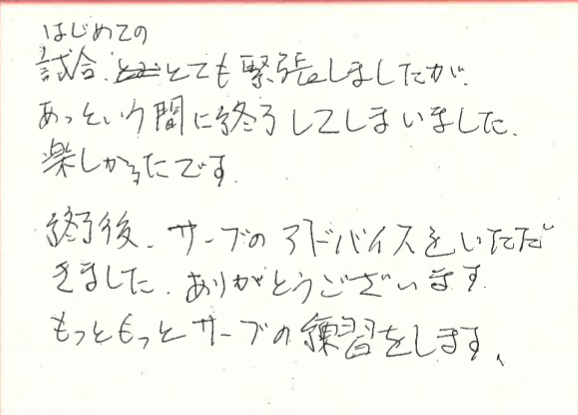 はじめての
試合、とても緊張しましたが、
あっという間に終了してしまいました。
楽しかったです。
終了後、サーブのアドバイスをいただ
きました。ありがとうございます。
もっともっとサーブの練習をします。